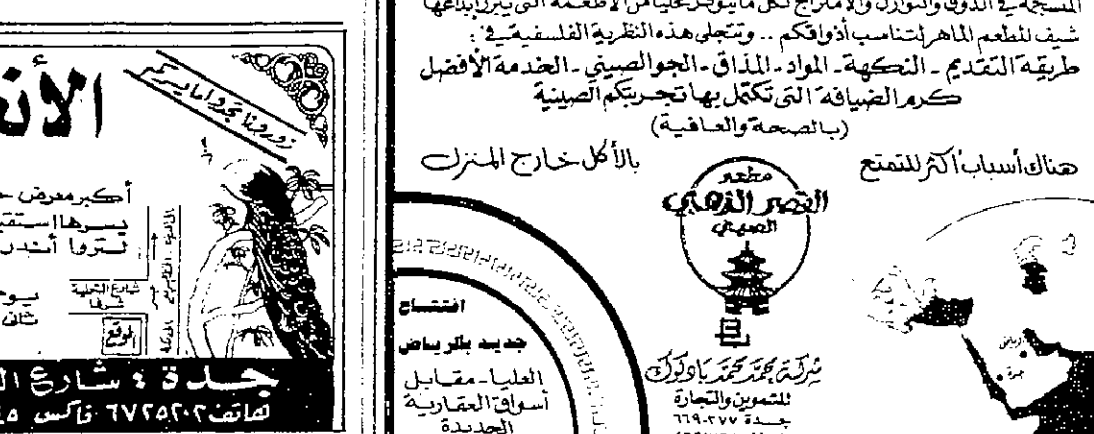 المنسجمة في الذوق والتوازن والامتزاج لكل مايتوفر محليا من الأطعمة التي يبرز إبداعها
شيف المطعم الماهر لتناسب أذواقكم .. وتتجلى هذه النظرية الفلسفية في :
طريقة التقديم - النكهة - المواد - المذاق - الجو الصيني - الخدمة الأفضل
كرم الضيافة التي تكتمل بها تجربتكم الصينية
(بالصحة والعافية)
هناك أسباب أكثر للتمتع
بالأكل خارج المنزل
مطعم
القصر الذهبي
الصيني
شركة محمد محمد بادكوك
للتموين والتجارة
جدة ٦٦٩٠٢٧٧
افتتاح
جديد بالرياض
العليا - مقابل
أسواق العقارية
الجديدة
الرياض
جدة
زورونا تجدوا ما يسركم
أكبر معرض
يسرها
لتروا أندر
شارع التحلية
شرقا
الموقع
جدة : شارع
هاتف ٦٧٢٥٢٠٢ فاكس